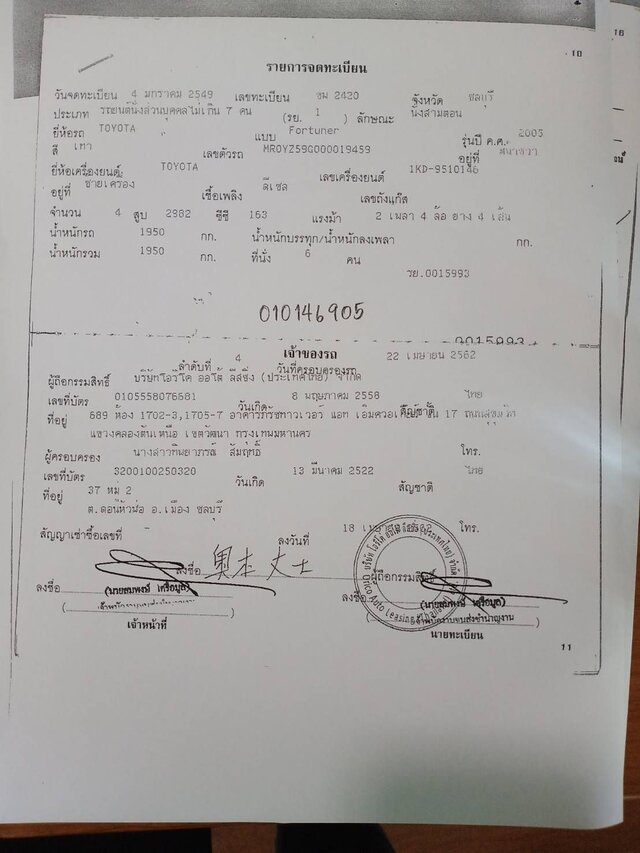 10
รายการจดทะเบียน
วันจดทะเบียน 4 มกราคม 2549 เลขทะเบียน ขม 2420 จังหวัด ชลบุรี
ประเภท รถยนต์นั่งส่วนบุคคลไม่เกิน 7 คน (รย. 1 ) ลักษณะ นั่งสามตอน
ยี่ห้อรถ TOYOTA แบบ Fortuner รุ่นปี ค.ศ. 2005
สี เทา เลขตัวรถ MR0YZ59G000019459 อยู่ที่
ยี่ห้อเครื่องยนต์ TOYOTA เลขเครื่องยนต์ 1KD-9510146
อยู่ที่ ซ้ายเครื่อง เชื้อเพลิง ดีเซล เลขถังแก๊ส
จำนวน 4 สูบ 2982 ซีซี 163 แรงม้า 2 เพลา 4 ล้อ ยาง 4 เส้น
น้ำหนักรถ 1950 กก. น้ำหนักบรรทุก/น้ำหนักลงเพลา กก.
น้ำหนักรวม 1950 กก. ที่นั่ง 6 คน
รย.0015993
010146905
0015993
เจ้าของรถ
ลำดับที่ 4 วันที่ครอบครองรถ 22 เมษายน 2562
ผู้ถือกรรมสิทธิ์ บริษัทโอริโค่ ออโต้ ลีสซิ่ง (ประเทศไทย) จำกัด
เลขที่บัตร 0105558076681 วันเกิด 8 พฤษภาคม 2558 สัญชาติ ไทย
ที่อยู่ 689 ห้อง 1702-3,1705-7 อาคารภิรัชทาวเวอร์ แอท เอ็มควอเทียร์ ชั้น 17 ถนนสุขุมวิท
แขวงคลองตันเหนือ เขตวัฒนา กรุงเทพมหานคร
ผู้ครอบครอง นางสาวทิพยาภรณ์ สัมฤทธิ์ โทร.
เลขที่บัตร 3200100250320 วันเกิด 13 มีนาคม 2522 สัญชาติ ไทย
ที่อยู่ 37 หมู่ 2
ต.ดอนหัวฬ่อ อ.เมือง ชลบุรี
สัญญาเช่าซื้อเลขที่ ลงวันที่ 18 เมษายน 2562 โทร.
ลงชื่อ 奥本丈士 ผู้ถือกรรมสิทธิ์
ลงชื่อ ลงชื่อ
(นายสมพงษ์ เครือมูล) (นายสมพงษ์ เครือมูล)
เจ้าหน้าที่ นายทะเบียน
11